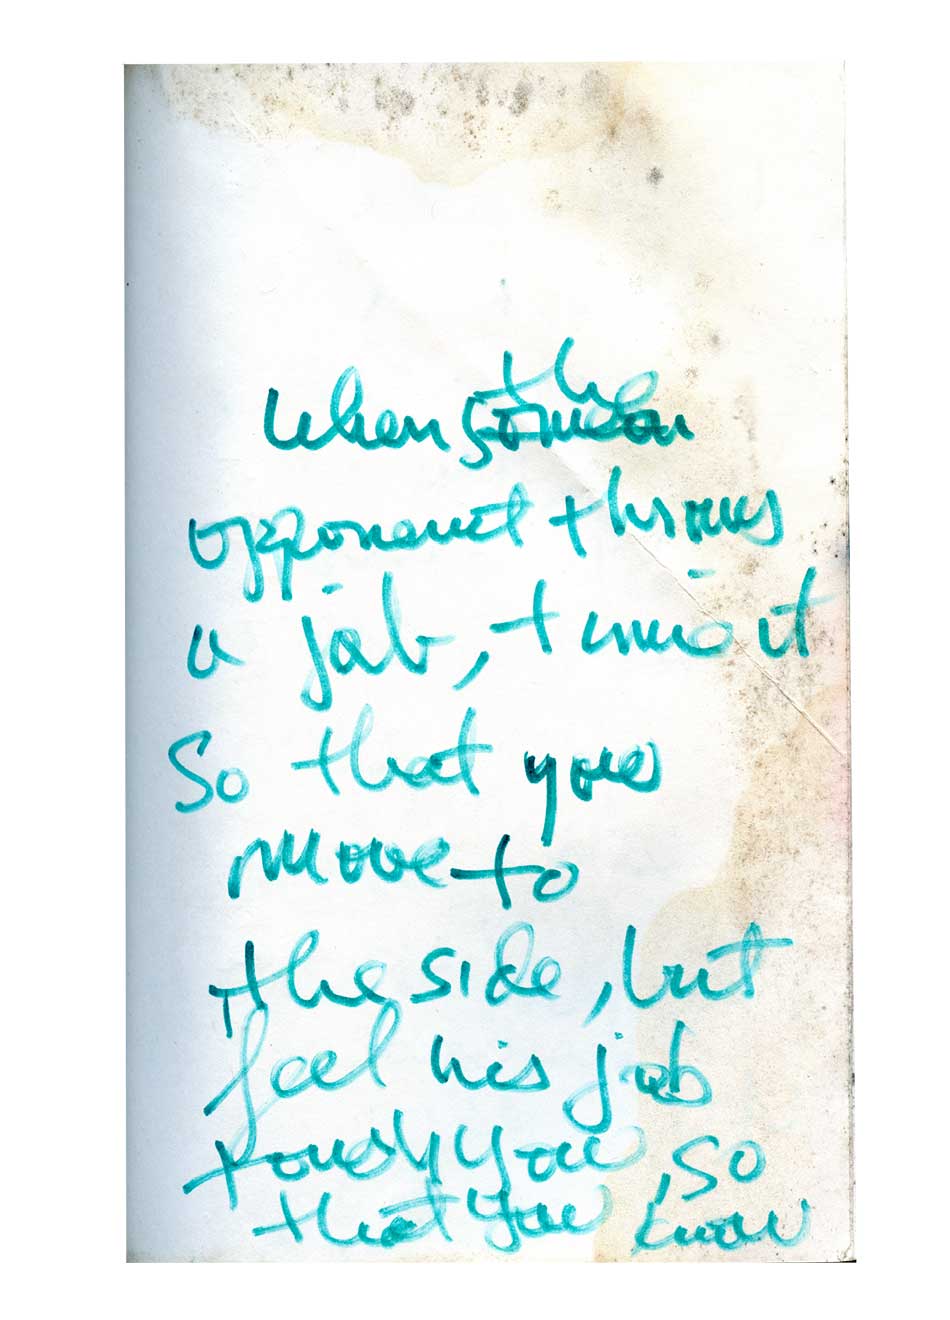 the
When someon
opponent throws
a jab, time it
So that you
move to
the side, but
feel his jab
touch you, so
that you know